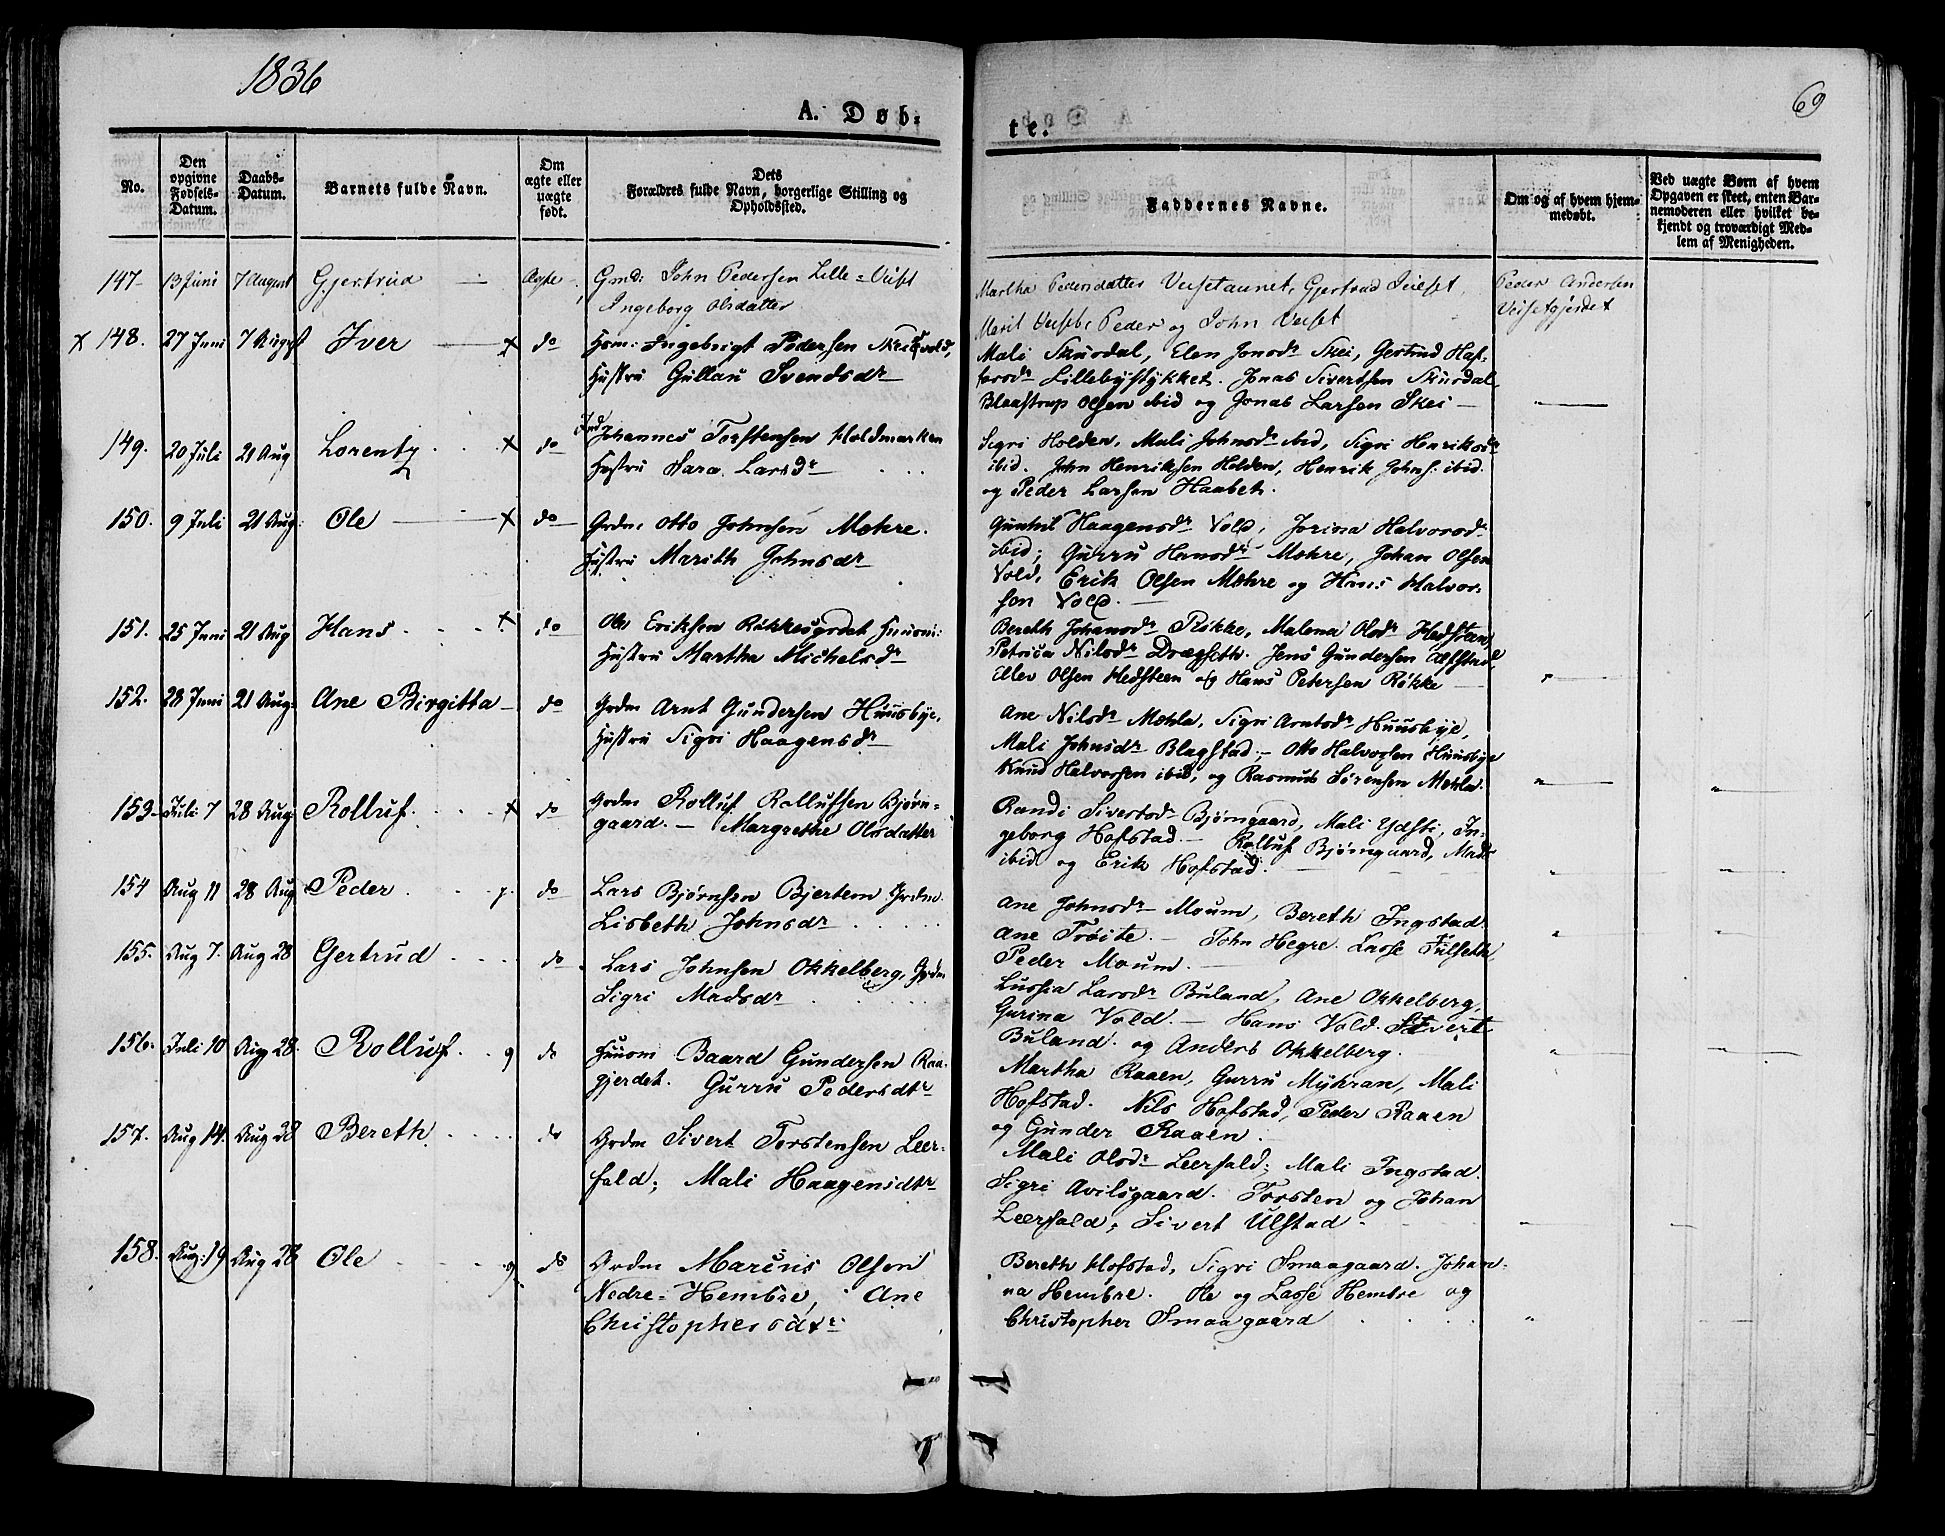 1836
69
A. Døb-
te.
No.
Den opgivne Fødsels-Datum.
Daabs-Datum.
Barnets fulde Navn.
Om ægte eller uægte født.
Dets Forældres fulde Navn, borgerlige Stilling og Opholdssted.
Faddernes Navne.
Om og af hvem hjem-medøbt.
Ved uægte Børn af hvem Opgaven er skeet, enten Bar-nemoderen eller hvilket be-kjendt og troværdigt Med-lem af Menigheden.
147 13 Juni 7 August Gjertrud Ægte Gmd: John Pedersen Lille-Veiset
Ingeborg Olsdatter
Martha Pedersdatter Veisetaunet, Gjertrud Veiset,
Merit Veiset, Peder og John Veiset
Peder Andersen
Veisetgjerdet
x 148. 27 Juni 7 August Iver x do Huum: Ingebrigt Pedersen
Hustru Gullau Svendsdr
Mali Skurdal, Elen Jonsdr Skei, Gertrud Haf-
forsdr Lillebystykket. Jonas Sivertsen Skurdal
Blaastrup Olsen ibid og Jonas Larsen Skei
149. 20 Juli 21 Aug Lorentz x do Ind Johannes Torstensen Holdmarken
Hustru Sara Larsdr
Sigri Holden, Mali Johnsdr ibid, Sigri Henriksdr
ibid. John Henriksen Holden, Henrik Johns: ibid.
og Peder Larsen Haabet.
150. 9 Juli 21 Aug: Ole x do Grdm Otto Johnsen Mæhre.
Hustru Marith Johnsdr
Gunhil Haagensdr Vold, Jorina Halvorsdr
ibid; Gurru Hansdr Mæhre, Johan Olsen
Vold, Erik Olsen Mæhre og Hans Halvor-
sen Vold.
151. 25 Juni 21 Aug Hans x do Ole Eriksen Røkkesgjerdet Huusm:
Hustru Martha Michelsdr
Bereth Johansdr Røkke, Malena Olsdr Hedsteen
Petrica Nilsdr Drægseth. Jens Gundersen
Ellev Olsen Hedsteen og Hans Petersen Røkke
152. 28 Juni 21 Aug: Ane Birgitta do Grdm Arnt Gundersen Huusbye,
Hustru Sigri Haagensdr
Ane Nilsdr Mæhle, Sigri Arntsdr Huusbye,
Mali Johnsdr Blagstad; Otto Halvorsen Huusbye
Knud Halvorsen ibid, og Rasmus Sørensen Mæhle.
153 Juli 7 28 Aug Rolluf. x do Grdm Rolluf Rollufsen Bjørn-
gaard. Margrethe Olsdatter
Randi Sivertsdr Bjørngaard, Mali Ydsti, In-
geborg Hofstad Rolluf Bjørngaard, Mads
ibid og Erik Hofstad.
154 Aug 11 28 Aug Peder. do Lars Bjørnsen Bjertem Grdm
Lisbeth Johnsdr
Ane Johnsdr Moum, Bereth Ingstad
Ane Trøite. John Hegre. Lasse Fulseth,
Peder Moum.
155. Aug 7. Aug 28 Gertrud do Lars Johnsen Okkelberg, Grdm
Sigri Madsdr
Lussia Larsdr Buland, Ane Okkelberg,
Gurina Vold. Hans Vold. Sivert
Buland. og Anders Okkelberg.
156. Juli 10 Aug 28. Rolluf. g do Huusm Baard Gundersen Raa-
gjerdet. Gurru Pedersdtr
Martha Raaen, Gurru Myhran, Mali
Hofstad. Nils Hofstad, Peder Raaen
og Gunder Raaen.
157. Aug 14. Aug 28 Bereth do Grdm Sivert Torstensen Leer-
fald; Mali Haagensdtr
Mali Olsdr Leerfald; Mali Ingstad
Sigri Avilsgaard. Torsten og Johan
Leerfald, Sivert Ulstad
158. Aug: 19 Aug 28 Ole g do Grdm Marcus Olsen
Nedre-Hembre, Ane
Christophersdtr:
Bereth Hofstad, Sigri Smaagaard. Johan-
na Hembre. Ole og Lasse Hembre og
Christopher Smaagaard